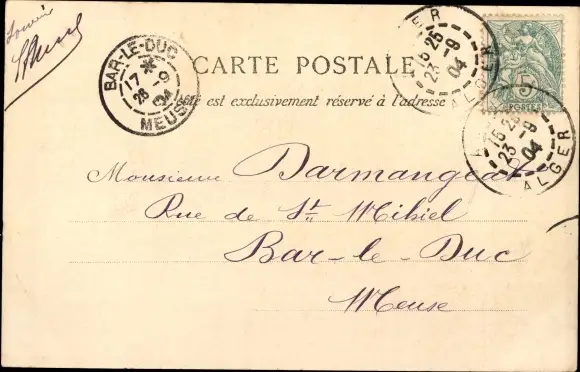 Souvenir
BAR-LE-DUC
17 * -9
26 04
MEUSE
CARTE POSTALE
Côté est exclusivement réservé à l'adresse
ALGER
15 25 -9
23 04
5
POSTES
ALGER
15 25 -9
23 04
Monsieur Darmangeat
Rue de St Mihiel
Bar-le-Duc
Meuse